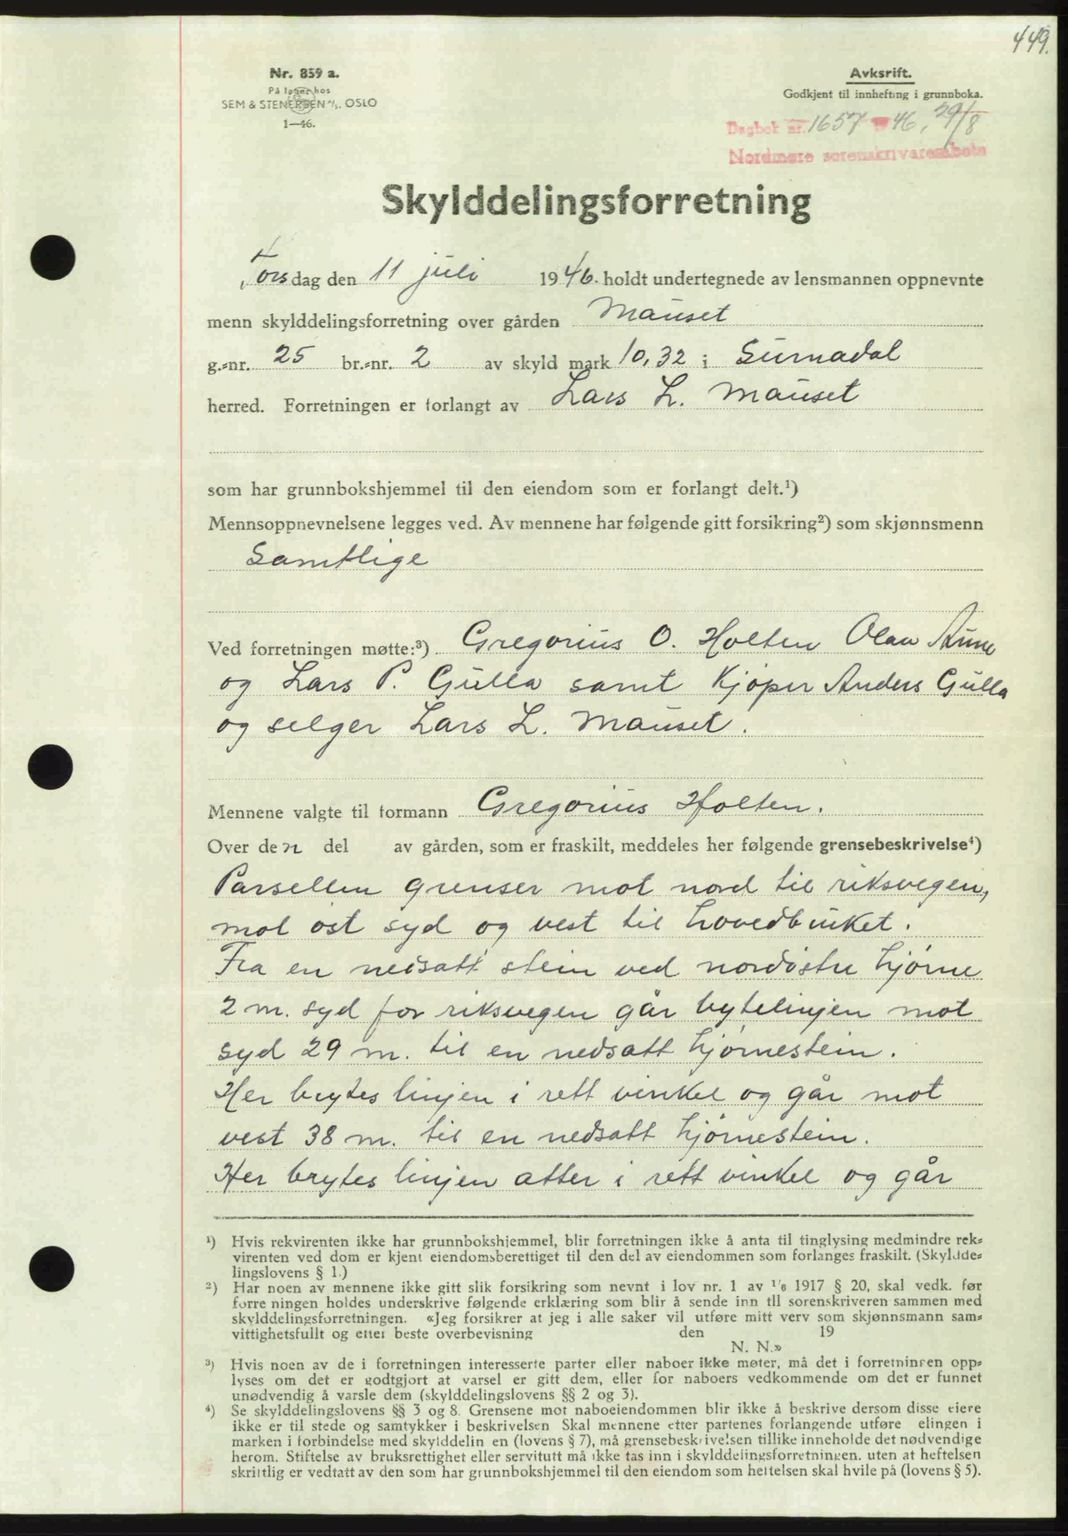 449.
Nr. 859 a.
På lager hos
SEM & STENERSEN A/S, OSLO
1—46.
Avksrift.
Godkjent til innhefting i grunnboka.
Dagbok nr. 1657 1946, 29/8
Nordmøre sorenskrivarembete
Skylddelingsforretning
Torsdag den 11 juli 1946. holdt undertegnede av lensmannen oppnevnte
menn skylddelingsforretning over gården Mauset
g.-nr. 25 br.-nr. 2 av skyld mark 10,32 i Surnadal
herred. Forretningen er forlangt av Lars L. Mauset
som har grunnbokshjemmel til den eiendom som er forlangt delt.¹)
Mennsoppnevnelsene legges ved. Av mennene har følgende gitt forsikring²) som skjønnsmenn
Samtlige
Ved forretningen møtte:³) Gregorius O. Holten Olav Aune
og Lars P. Gulla samt Kjøper Anders Gulla
og selger Lars L. Mauset.
Mennene valgte til formann Gregorius Holten.
Over den del av gården, som er fraskilt, meddeles her følgende grensebeskrivelse⁴)
Parsellen grenser mot nord til riksvegen,
mot øst syd og vest til hovedbruket.
Fra en nedsatt stein ved nordøstre hjørne
2 m. syd for riksvegen går bytelinjen mot
syd 29 m. til en nedsatt hjørnestein.
Her brytes linjen i rett vinkel og går mot
vest 38 m. til en nedsatt hjørnestein.
Her brytes linjen atter i rett vinkel og går
¹) Hvis rekvirenten ikke har grunnbokshjemmel, blir forretningen ikke å anta til tinglysing medmindre rek-
virenten ved dom er kjent eiendomsberettiget til den del av eiendommen som forlanges fraskilt. (Skyldde-
lingslovens § 1.)
²) Har noen av mennene ikke gitt slik forsikring som nevnt i lov nr. 1 av 1/6 1917 § 20, skal vedk. før
forretningen holdes underskrive følgende erklæring som blir å sende inn til sorenskriveren sammen med
skylddelingsforretningen. «Jeg forsikrer at jeg i alle saker vil utføre mitt verv som skjønnsmann sam-
vittighetsfullt og etter beste overbevisning den 19
N. N.»
³) Hvis noen av de i forretningen interesserte parter eller naboer ikke møter, må det i forretningen opp-
lyses om det er godtgjort at varsel er gitt dem, eller for naboers vedkommende om det er funnet
unødvendig å varsle dem (skylddelingslovens §§ 2 og 3).
⁴) Se skylddelingslovens §§ 3 og 8. Grensene mot naboeiendommen blir ikke å beskrive dersom disse eiere
ikke er til stede og samtykker i beskrivelsen Skal mennene etter partenes forlangende utføre elingen i
marken i forbindelse med skylddelin en (lovens § 7), må grensebeskrivelsen tillike inneholde det nødvendige
herom. Stiftelse av bruksrettighet eller servitutt må ikke tas inn i skylddelingsforretningen, uten at heftelsen
skriftlig er vedtatt av den som har grunnbokshjemmel til den eiendom som heftelsen skal hvile på (lovens § 5).